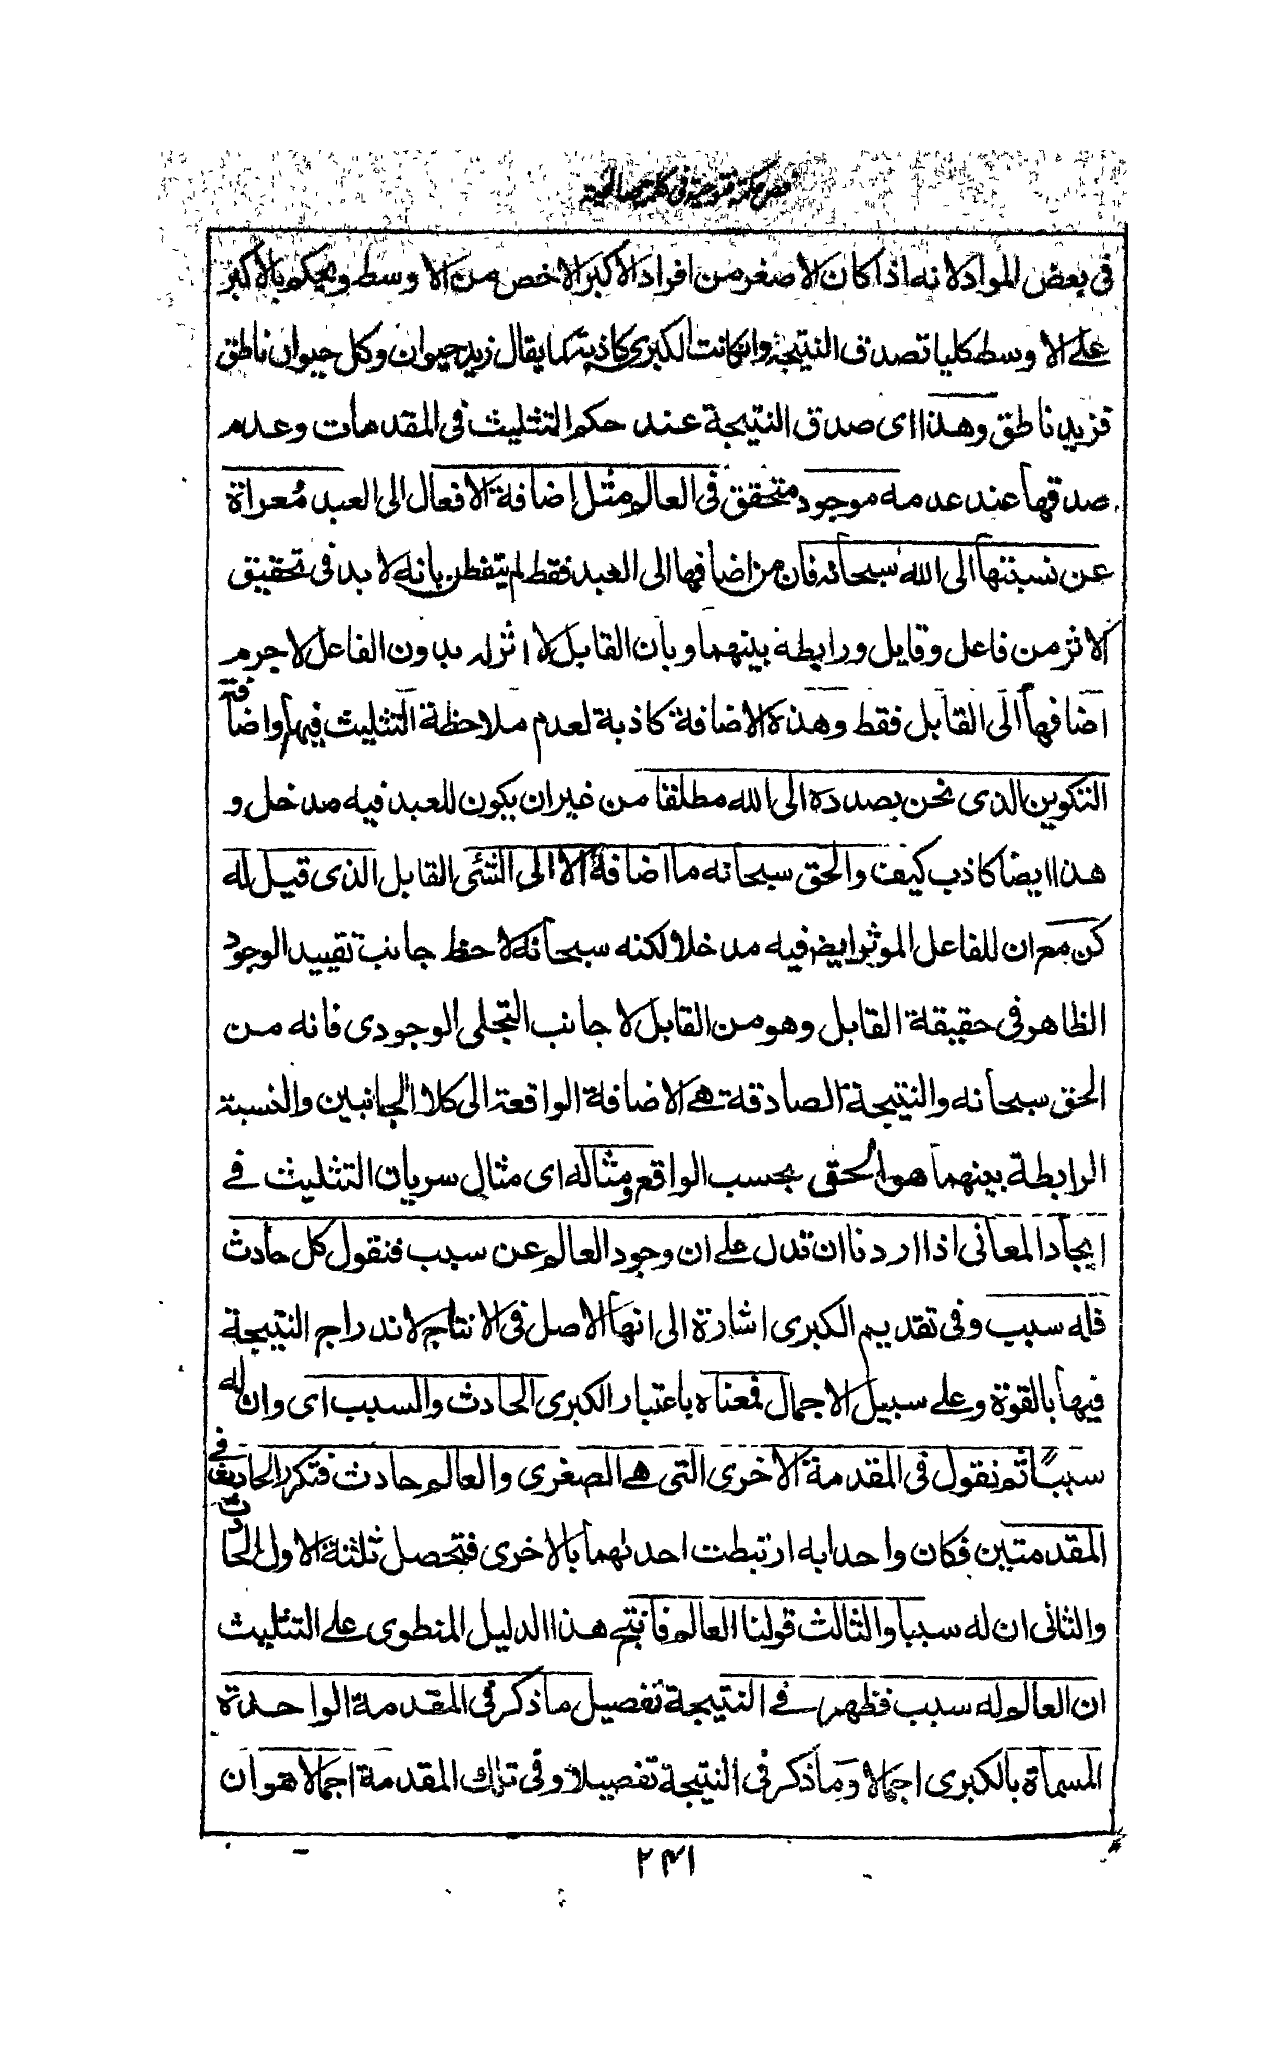 فص حكمة فتوحية فى كلمة صالحية
فى بعض المواد لانه اذا كان الاصغر من افراد الاكبر الاخص من الاوسط ويحكم بالاكبر
على الاوسط كليا تصدق النتيجة وان كانت الكبرى كاذبة كما يقال زيد حيوان وكل حيوان ناطق
فزيد ناطق وهذا اى صدق النتيجة عند حكم التثليث فى المقدمات وعدم
صدقها عند عدمه موجود متحقق فى العالم مثل اضافة الافعال الى العبد مُعراة
عن نسبتها الى الله سبحانه فان من اضافها الى العبد فقط لم يتفطن بانه لا بد فى تحقيق
الاثر من فاعل وقابل ورابطة بينهما وبان القابل لا اثر له بدون الفاعل لا جرم
اضافها الى القابل فقط وهذه الاضافة كاذبة لعدم ملاحظة التثليث فيها واضافة
التكوين الذى نحن بصدده الى الله مطلقا من غير ان يكون للعبد فيه مدخل و
هذا ايضا كاذب كيف والحق سبحانه ما اضافه الا الى الشئ القابل الذى قيل له
كن مع ان للفاعل الموثر ايض فيه مدخلا لكنه سبحانه لاحظ جانب تقييد الوجود
الظاهر فى حقيقة القابل وهو من القابل لا جانب التجلى الوجودى فانه من
الحق سبحانه والنتيجة الصادقة هى الاضافة الواقعة الى كلا الجانبين والنسبة
الرابطة بينهما هو الحق بحسب الواقع ومثاله اى مثال سريان التثليث فى
ايجاد المعانى اذا اردنا ان ندل على ان وجود العالم عن سبب فنقول كل حادث
فله سبب وفى تقديم الكبرى اشارة الى انها الاصل فى الانتاج لاندراج النتيجة
فيها بالقوة وعلى سبيل الاجمال فمعناه باعتبار الكبرى الحادث والسبب اى وان له
سببًا ثم نقول فى المقدمة الاخرى التى هى الصغرى والعالم حادث فتكرر الحادث فى
المقدمتين فكان واحدا به ارتبطت احدىهما بالاخرى فتحصل ثلثة الاول الحادث
والثانى ان له سببا والثالث قولنا العالم فانتج هذا الدليل المنطوى على التثليث
ان العالم له سبب فظهر فى النتيجة تفصيل ما ذكر فى المقدمة الواحدة
المسماة بالكبرى اجمالا وما ذكر فى النتيجة تفصيلا وفى تلك المقدمة اجمالا هو ان
۲۴۱